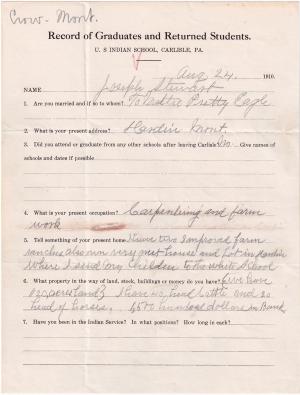 Crow - Mont.
Record of Graduates and Returned Students.
U. S INDIAN SCHOOL, CARLISLE, PA.
Aug 24. 1910.
NAME Joseph Stewart
1. Are you married and if so to whom? To Pretty Eagle
2. What is your present address? Hardin Mont.
3. Did you attend or graduate from any other schools after leaving Carlisle? No. Give names of
schools and dates if possible
4. What is your present occupation? Carpentering and farm
work
5. Tell something of your present home. I have two improved farm
ranches also one very nice house and lot in Hardin
where I send my children to the white school
6. What property in the way of land, stock, buildings or money do you have? have
acres land I have 40 head cattle and 20
head of horses. 4500 hundred dollars in Bank
7. Have you been in the Indian Service? In what positions? How long in each?